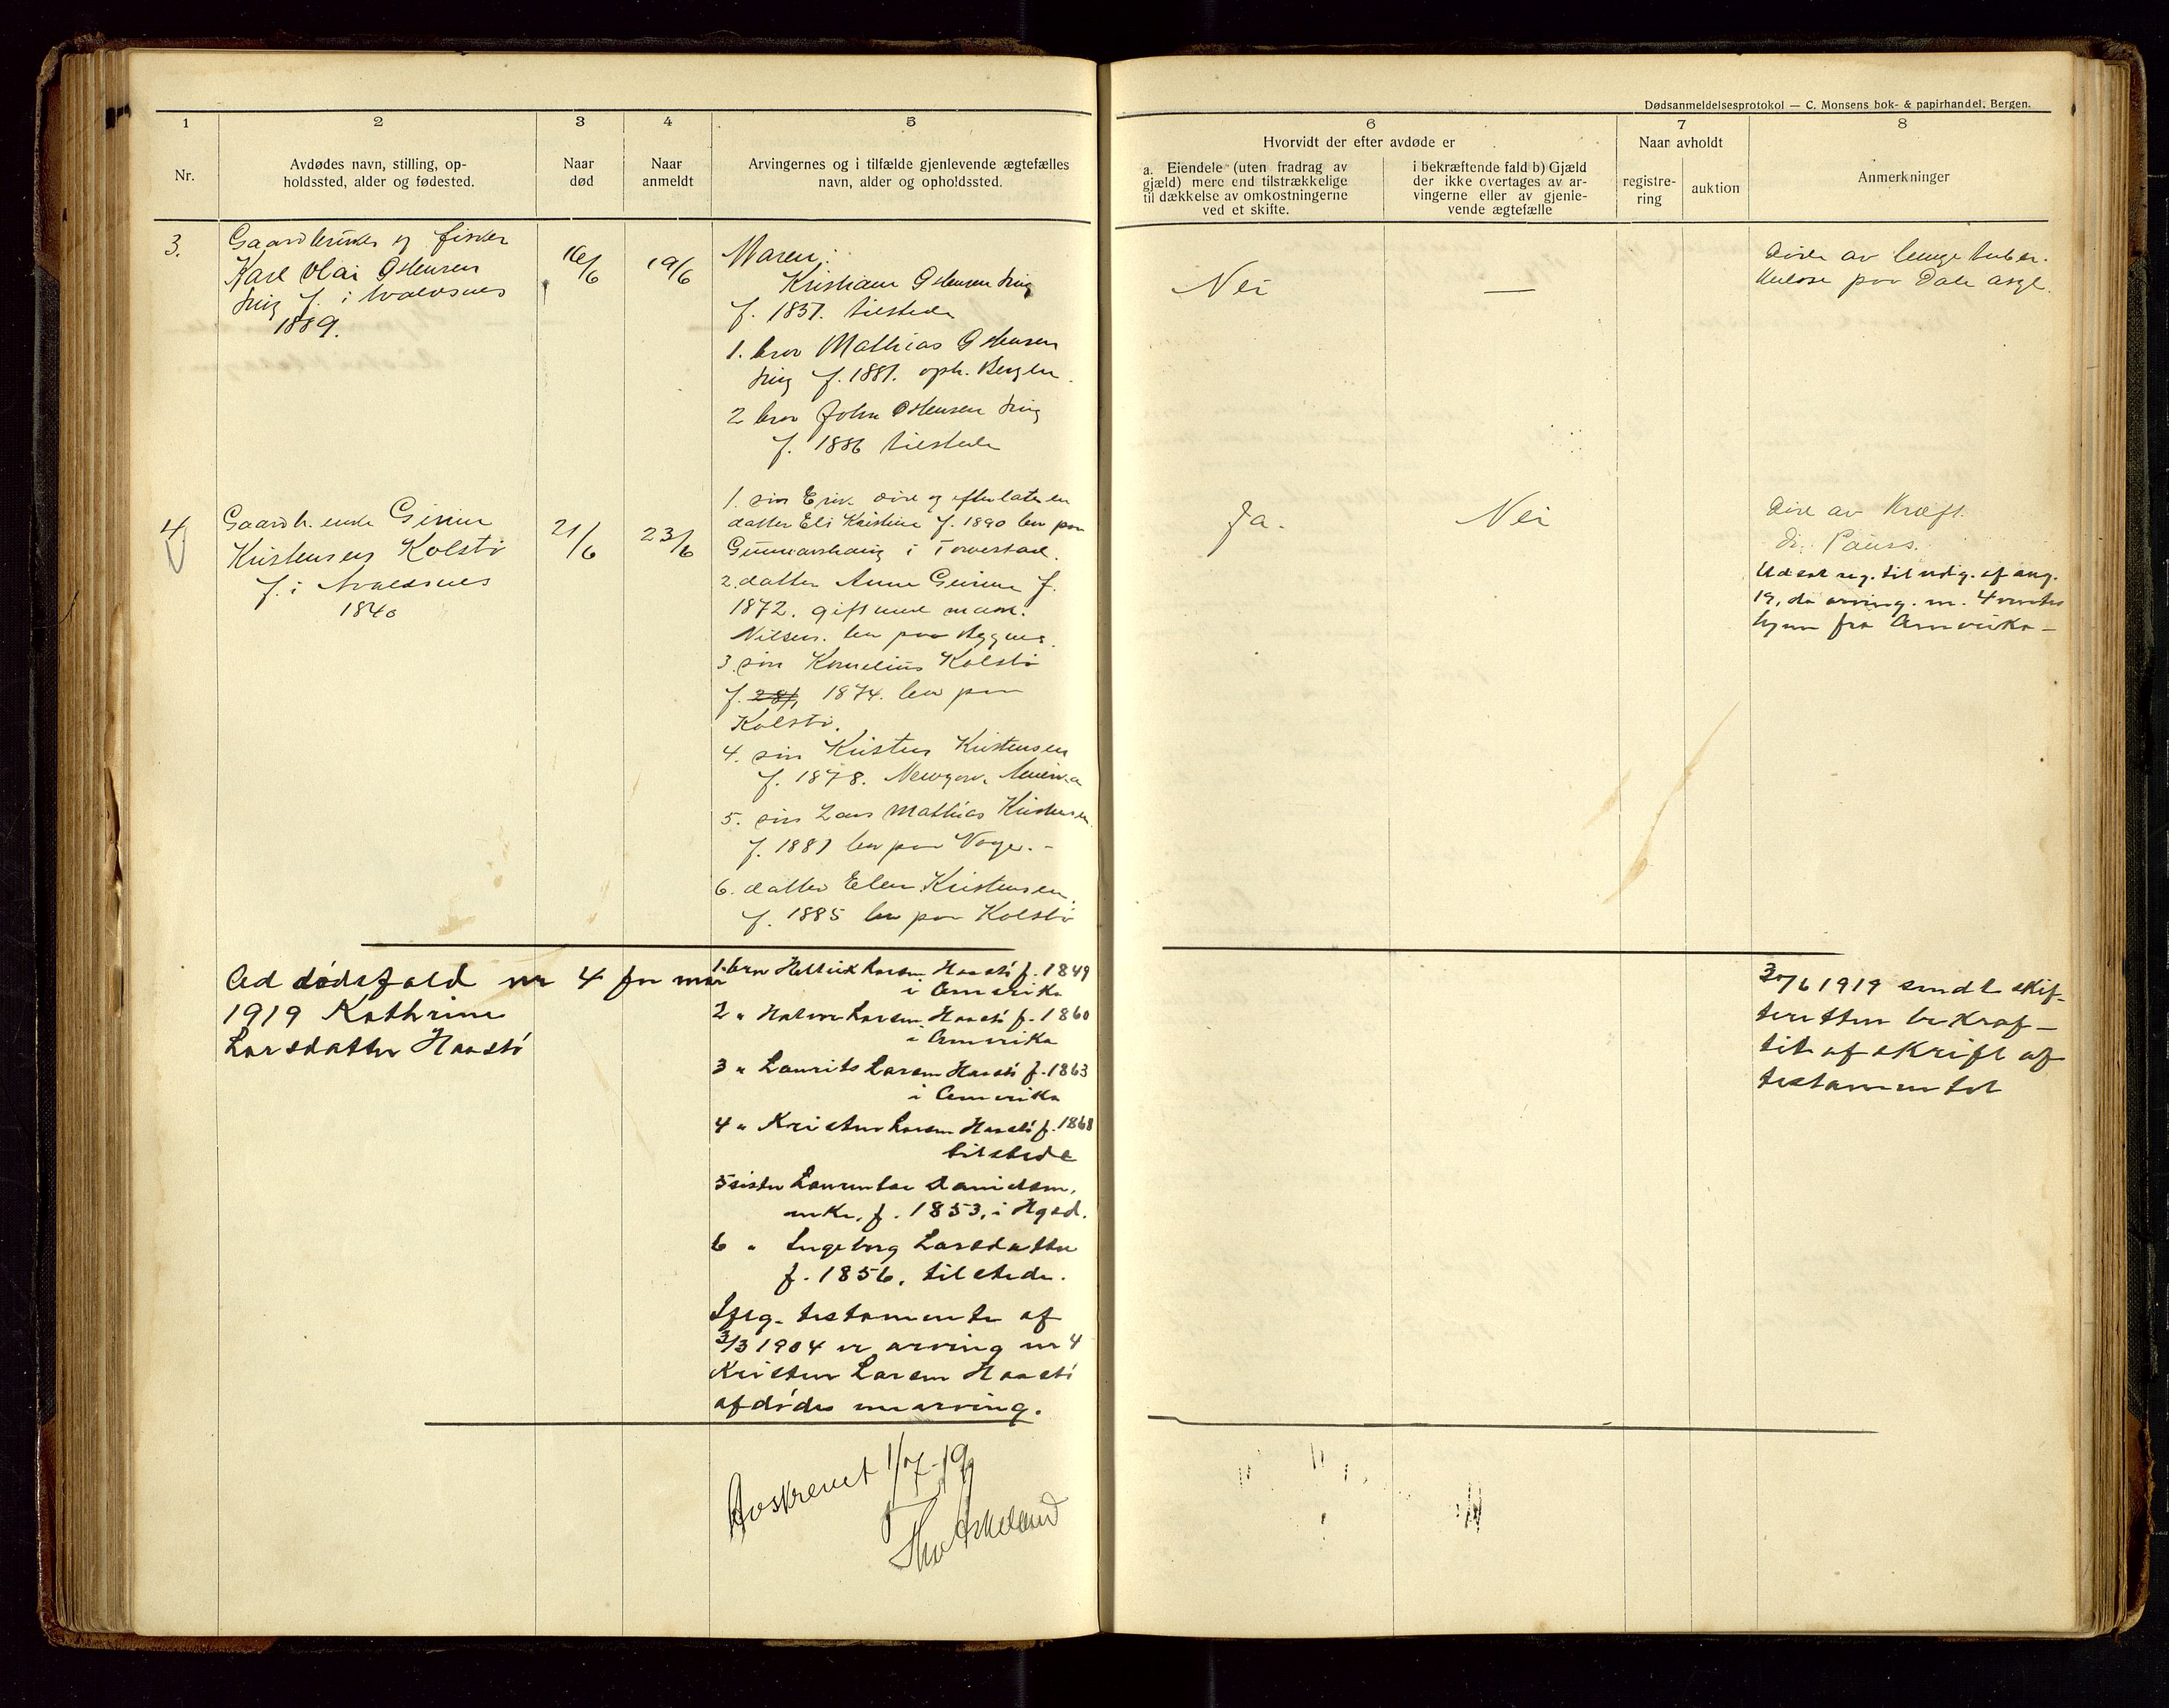 Dødsanmeldelsesprotokol — C. Monsens bok- & papirhandel, Bergen.
1
2
3
4
5
6
7
8
Nr.
Avdødes navn, stilling, op-
holdssted, alder og fødested.
Naar
død
Naar
anmeldt
Arvingernes og i tilfælde gjenlevende ægtefælles
navn, alder og opholdssted.
Hvorvidt der efter avdøde er
a. Eiendele (uten fradrag av
gjæld) mere end tilstrækkelige
til dækkelse av omkostningerne
ved et skifte.
i bekræftende fald b) Gjæld
der ikke overtages av ar-
vingerne eller av gjenle-
vende ægtefælle
Naar avholdt
registre-
ring
auktion
Anmerkninger
3.
Gaardbruker og fisker
Karl Olai Ostensen
f. i Avaldsnes
1889.
16/6
19/6
Kristiane Ostensen
f. 1851. tilstede
1. bror Mathias Ostensen
f. 1881. oph. Bergen.
2 bror John Ostensen
f. 1886 tilstede
Nei
—
Døde av lunge tuber-
kulose paa Dale asyl.
4
Gaardb. enke
Kristensen Kolstø
f. i Avaldsnes
1840
21/6
23/6
1. søn Erik død og efterlater en
datter Eli Kristine f. 1890 bor paa
Gunnarshaug i Torvestad.
2. datter Anne f.
1872. gift med
Nilsen. bor paa
3. søn Kornelius Kolstø
f. 1874. bor paa
Kolstø.
4. søn Kristen Kristensen
f. 1878. Amerika
5. søn Lars Mathias Kristensen
f. 1881 bor paa Vaage. -
6. datter Elen Kristensen.
f. 1885 bor paa Kolstø
Ja.
Nei
Død av Kræft.
dr. Pauss.
Udsat reg. til udg. af aug.
19, da arving. nr. 4 ventes
hjem fra Amerika —
Ad dødsfald nr 4 for mai
1919 Kathrine
Larsdatter Haastø
1. bror Larsen Haastø f. 1849
i Amerika
2 " Halvor Larsen Haastø f. 1860
i Amerika
3 " Laurits Larsen Haastø f. 1863
i Amerika
4 " Kristen Larsen Haastø f. 1868
tilstede
5 søster Danielsen,
enke, f. 1853, i Hgsd.
6 " Ingeborg Larsdatter
f. 1856, tilstede.
Ifølg. testamente af
3/3 1904 er arving nr 4
Kristen Larsen Haastø
afdødes enearving.
30/6 1919 sendt skif-
teretten bekræf-
tet afskrift af
testamentet
Avskrevet 1/7-19